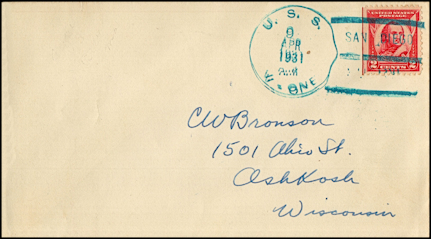 U. S. S.
9
APR
1931
V-ONE
SAN DIEGO
UNITED STATES
POSTAGE
2 CENTS 2
CW Bronson
1501 Ohio St.
OshKosh
Wisconsin